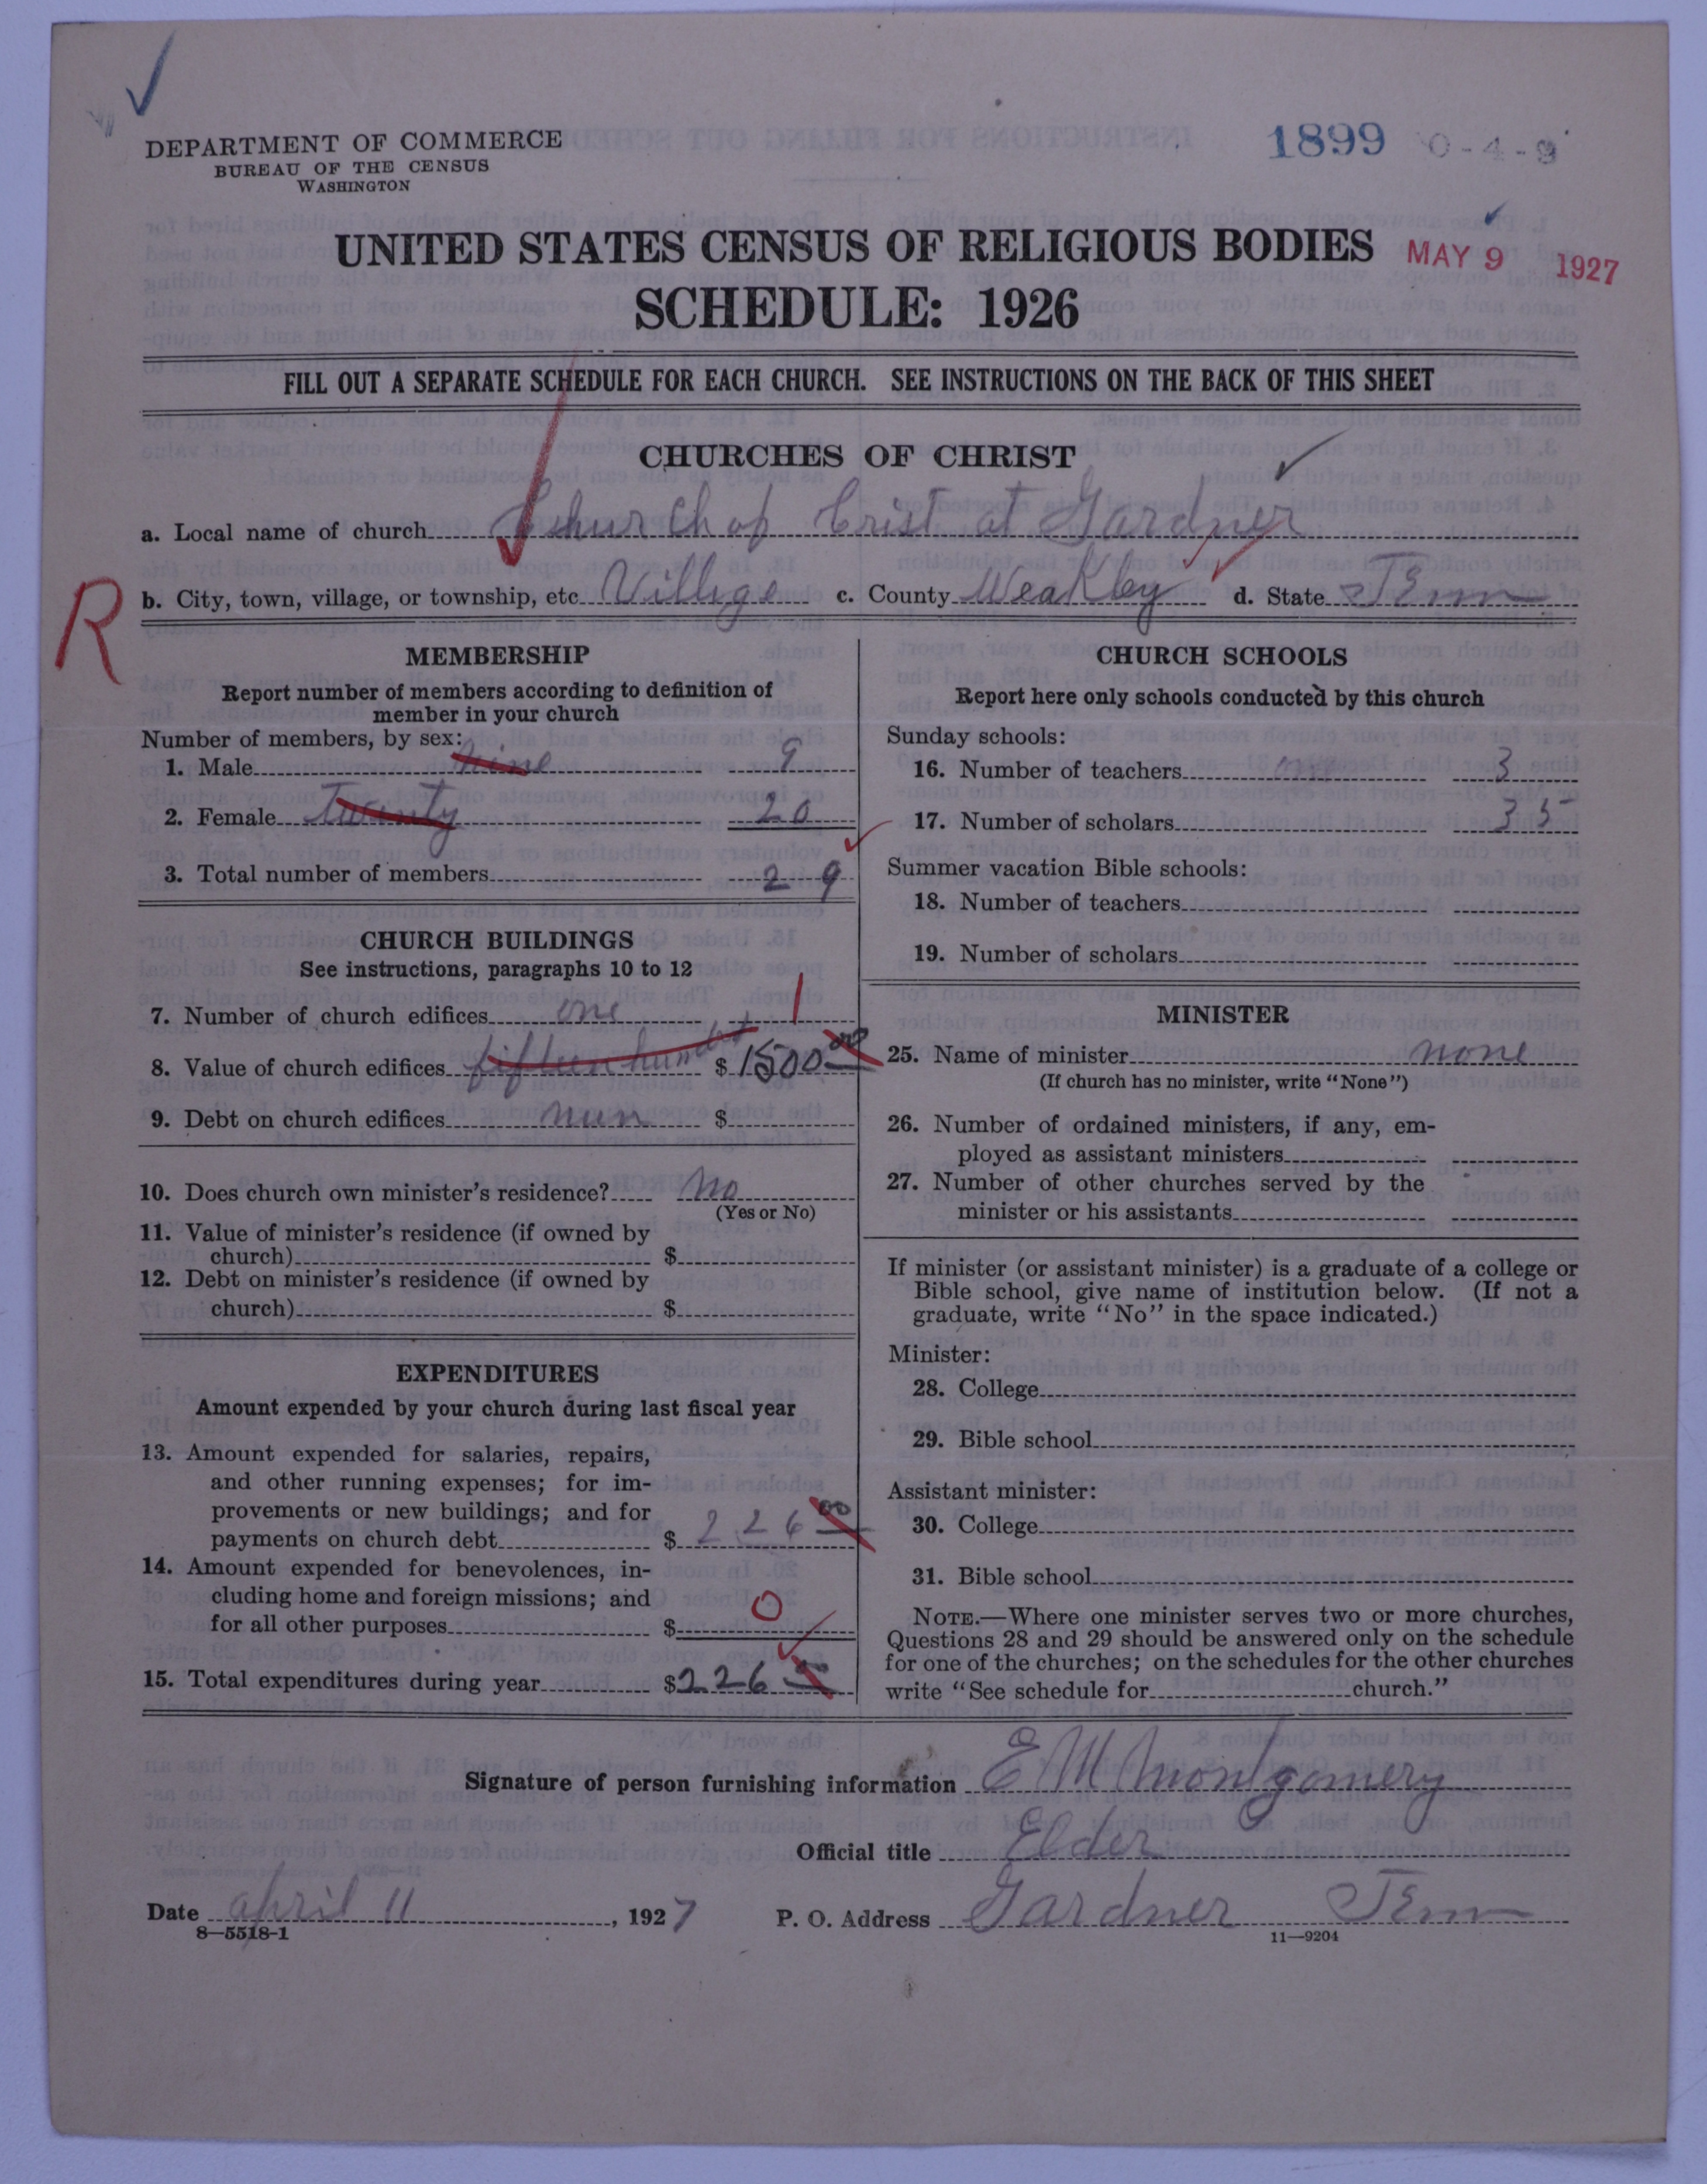 DEPARTMENT OF COMMERCE
BUREAU OF THE CENSUS
WASHINGTON
1899 0-4-9
UNITED STATES CENSUS OF RELIGIOUS BODIES
MAY 9 1927
SCHEDULE: 1926
FILL OUT A SEPARATE SCHEDULE FOR EACH CHURCH. SEE INSTRUCTIONS ON THE BACK OF THIS SHEET
CHURCHES OF CHRIST
a. Local name of church Church of Crist at Gardner
R
b. City, town, village, or township, etc. Villige c. County Weakley d. State Tenn
MEMBERSHIP
Report number of members according to definition of
member in your church
Number of members, by sex:
1. Male nine 9
2. Female Twenty 20
3. Total number of members 29
CHURCH BUILDINGS
See instructions, paragraphs 10 to 12
7. Number of church edifices one 1
8. Value of church edifices fifteen hundred $1500 00
9. Debt on church edifices nun $
10. Does church own minister's residence? No
(Yes or No)
11. Value of minister's residence (if owned by
church) $
12. Debt on minister's residence (if owned by
church) $
EXPENDITURES
Amount expended by your church during last fiscal year
13. Amount expended for salaries, repairs,
and other running expenses; for im-
provements or new buildings; and for
payments on church debt $ 226 00
14. Amount expended for benevolences, in-
cluding home and foreign missions; and
for all other purposes $ 0
15. Total expenditures during year $226
CHURCH SCHOOLS
Report here only schools conducted by this church
Sunday schools:
16. Number of teachers 3
17. Number of scholars 35
Summer vacation Bible schools:
18. Number of teachers
19. Number of scholars
MINISTER
25. Name of minister none
(If church has no minister, write "None")
26. Number of ordained ministers, if any, em-
ployed as assistant ministers
27. Number of other churches served by the
minister or his assistants
If minister (or assistant minister) is a graduate of a college or
Bible school, give name of institution below. (If not a
graduate, write "No" in the space indicated.)
Minister:
28. College
29. Bible school
Assistant minister:
30. College
31. Bible school
NOTE.—Where one minister serves two or more churches,
Questions 28 and 29 should be answered only on the schedule
for one of the churches; on the schedules for the other churches
write "See schedule for church."
Signature of person furnishing information E M Montgomery
Official title Elder
Date april 11, 1927 P. O. Address Gardner Tenn
8—5518-1
11—9204